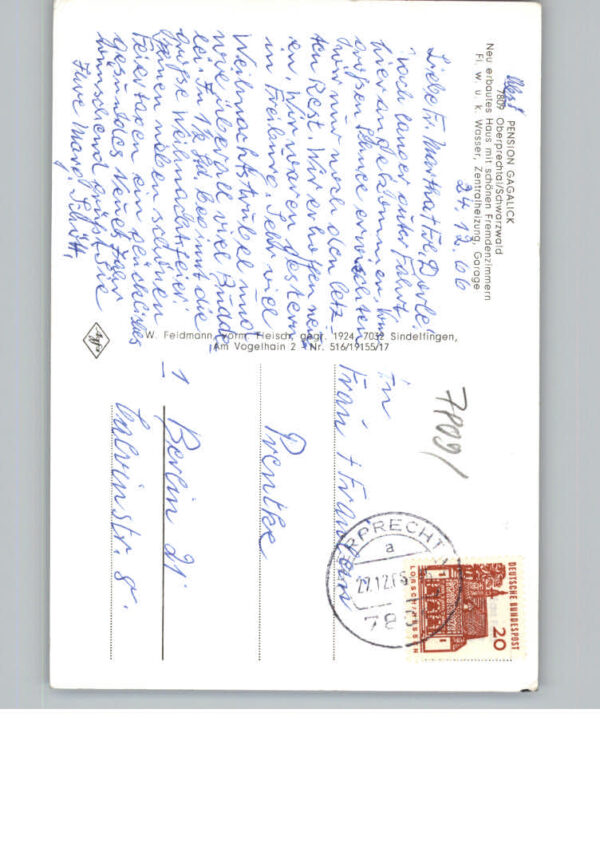 PENSION GAGALICK
7809 Oberprechtal/Schwarzwald
Neu erbautes Haus mit schönen Fremdenzimmern
Fl. w. u. k. Wasser, Zentralheizung, Garage
24.12.66
Liebe Fr. Martha + Frl. Dorle!
Nach langer guter Fahrt
hier angekommen. Vom
großen Schnee erwischten
wir nur noch den letz-
ten Rest. Wir erhoffen neu-
en. Wir waren gestern
in Freiburg. Sehr viel
Weihnachtstrubel und
wie überall viel Bude-
lei. In 1½ Std. beginnt die
große Weihnachtsfeier.
Ihnen neben schönen
Feiertagen ein glückliches
gesundes Neues Jahr
wünschend grüßt Sie
Ihre Marg. Schütt
W. Feldmann, vorm. Fleisch, gegr. 1924, 7032 Sindelfingen,
Am Vogelhain 2 - Nr. 516/19155/17
Agfa
7809/
An
Frau + Fräulein
Prentke
1 Berlin 21
Calvinstr. 8.
OBERPRECHTAL
a
27.12.66
7809
DEUTSCHE BUNDESPOST
20
LORSCH/HESSEN